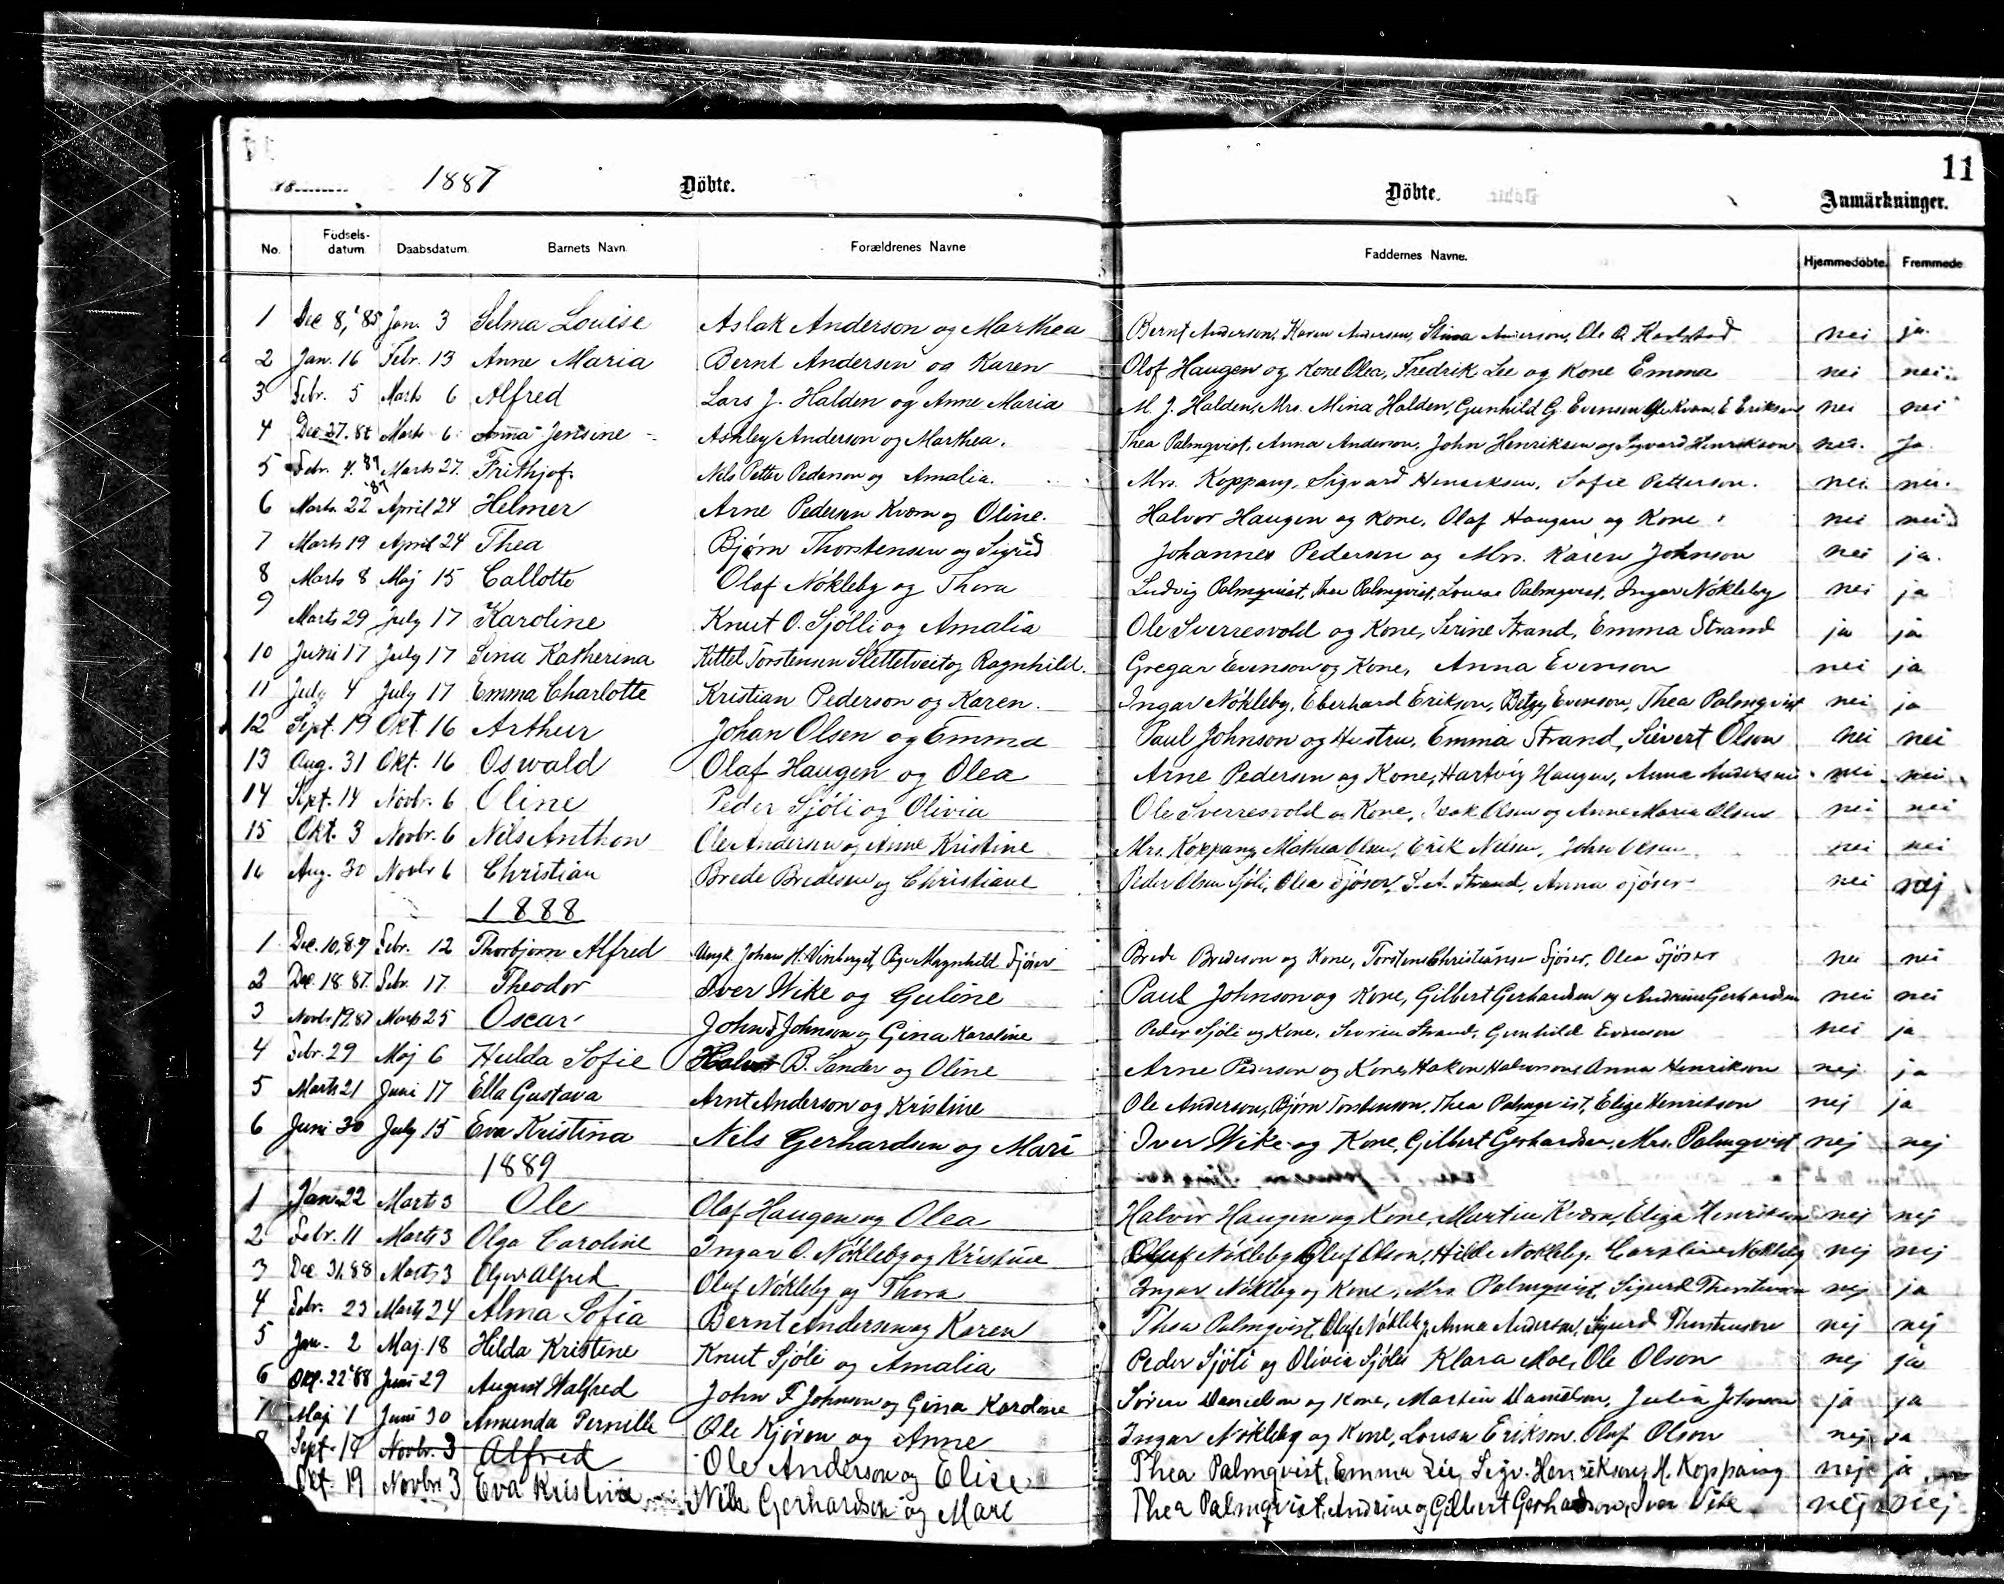 11
18........ 1887 Döbte. Döbte. Anmärkninger.
No. Födsels-datum. Daabsdatum. Barnets Navn. Forældrenes Navne Faddernes Navne. Hjemmedöbte. Fremmede
1 Dec 8, '85 Jan. 3 Selma Louise Aslak Anderson og Marthea Bernt Anderson, Karen Anderson, Stina Anderson, Ole O. nei ja.
2 Jan. 16 Febr. 13 Anne Maria Bernt Andersen og Karen Olof Haugen og Kone Olea, Fredrik Lee og Kone Emma nei nei
3 Febr. 5 Marts 6 Alfred Lars J. Halden og Anne Maria M. J. Halden, Mrs. Mina Halden, Gunhild G. Evensen, E. Eriksen nei nei
4 Dec 27. 86 Marts 6 Anna Jensine Ashley Anderson og Marthea. Thea Palmqvist, Anna Anderson, John Henriksen og Sigvard Henrikson nei. Ja
5 Febr. 4. 87 Marts 27. Frithjof. Nils Petter Pederson og Amalia. Mrs. Koppang, Sigvard Henriksen, Sofie Petterson. nei. nei.
6 Marts 22 '87 April 24 Helmer Arne Pedersen Kværn og Oline. Halvor Haugen og Kone, Olaf Haugen og Kone nei nei
7 Marts 19 April 24 Thea Bjørn Thorstensen og Sigrid Johannes Pedersen og Mrs. Karen Johnson nei ja.
8 Marts 8 Maj 15 Callotte Olaf Nökleby og Thora Ludvig Palmqvist, Thea Palmqvist, Louise Palmqvist, Ingar Nökleby nei ja
9 Marts 29 July 17 Karoline Knut O. Sjölli og Amalia Ole Sverresvold og Kone, Serine Strand, Emma Strand ja ja
10 Juni 17 July 17 Lina Katherina Kittel Torstensen Slettetveit og Ragnhild. Gregar Evenson og Kone, Anna Evenson nei ja
11 July 4 July 17 Emma Charlotte Kristian Pederson og Karen. Ingar Nökleby, Eberhard Erikson, Betsy Evenson, Thea Palmqvist nei ja
12 Sept. 19 Okt 16 Arthur Johan Olsen og Emma Paul Johnson og Hustru, Emma Strand, Sievert Olson nei nei
13 Aug. 31 Okt. 16 Oswald Olaf Haugen og Olea Arne Pedersen og Kone, Hartvig Haugen, Anna Andersen nei nei
14 Sept. 14 Novbr. 6 Oline Peder Sjöli og Olivia Ole Sverresvold og Kone, Isak Olsen og Anne Maria Olsen nei nei
15 Okt. 3 Novbr. 6 Nils Anthon Ole Andersen og Anne Kristine Mrs. Koppang, Mathea Olsen, Erik Nilsen, John Olsen nei nei
16 Aug. 30 Novbr 6 Christian Brede Bredesen og Christiane Peder Olsen Sjöli, Olea Fjöser, S. A. Strand, Anna Fjöser nei nej
1888
1 Dec. 10, 87 Febr. 12 Thorbjorn Alfred Ungk. Johan H. Vinberget, Pige Magnhild Fjöser Brede Bredeson og Kone, Torstens Christiansen Fjöser, Olea Fjöser nei nei
2 Dec. 18 87. Febr. 17. Theodor Iver Wike og Guline Paul Johnson og Kone, Gilbert Gerhardsen og Andrine Gerhardsen nei nei
3 Novbr 19 87 Marts 25 Oscar John F Johnson og Gina Karoline Peder Sjöli og Kone, Strand, Gunhild Evenson nei ja
4 Febr. 29 Maj 6 Hulda Sofie Halvor B. Sander og Oline Arne Pederson og Kone, Hakon Halvorson, Anna Henrikson nej ja
5 Marts 21 Juni 17 Ella Gustava Arnt Anderson og Kristine Ole Anderson, Bjørn Torstenson, Thea Palmqvist, Elize Henrikson nej ja
6 Juni 30 July 15 Eva Kristina Nils Gerhardsen og Mari Iver Wike og Kone, Gilbert Gerhardsen, Mrs. Palmqvist nej nej
1889
1 Jan. 22 Marts 3 Ole Olaf Haugen og Olea Halvor Haugen og Kone, Martin Kværn, Eliza Henriksen nej nej
2 Febr. 11 Marts 3 Olga Caroline Ingar O. Nökleby og Kristine Oluf Nökleby, Oluf Olson, Hilde Nökleby, Caroline Nökleby nej nej
3 Dec. 31. 88 Marts 3 Alfred Oluf Nökleby og Thora Ingar Nökleby og Kone, Mrs. Palmqvist, Sigurd Thorstenson nej ja
4 Febr. 23 Marts 24 Alma Sofia Bernt Andersen og Karen Thea Palmqvist, Oluf Nökleby, Anna Anderson, Sigurd Thorstenson nej nej
5 Jan. 2 Maj. 18 Hilda Kristine Knut Sjöli og Amalia Peder Sjöli og Olivia Sjöli, Klara Moe, Ole Olson nej ja
6 22 '88 Juni 29 August Walfred John F Johnson og Gina Karoline Sören Danielson og Kone, Martin Danielson, Julia Johnson ja ja
7 Maj 1 Juni 30 Amunda Pernille Ole Kjören og Anne Ingar Nökleby og Kone, Lousa Erikson. Oluf Olson nej ja
Sept. 14 Novbr. 3 Alfred Ole Anderson og Elise Thea Palmqvist, Emma Lie, Sigv. Henrikson, H. Koppang nej ja
Okt. 19 Novbr 3 Eva Kristine Nils Gerhardsen og Mari Thea Palmqvist, Andrine og Gilbert Gerhardson, Iver Vike nej nej